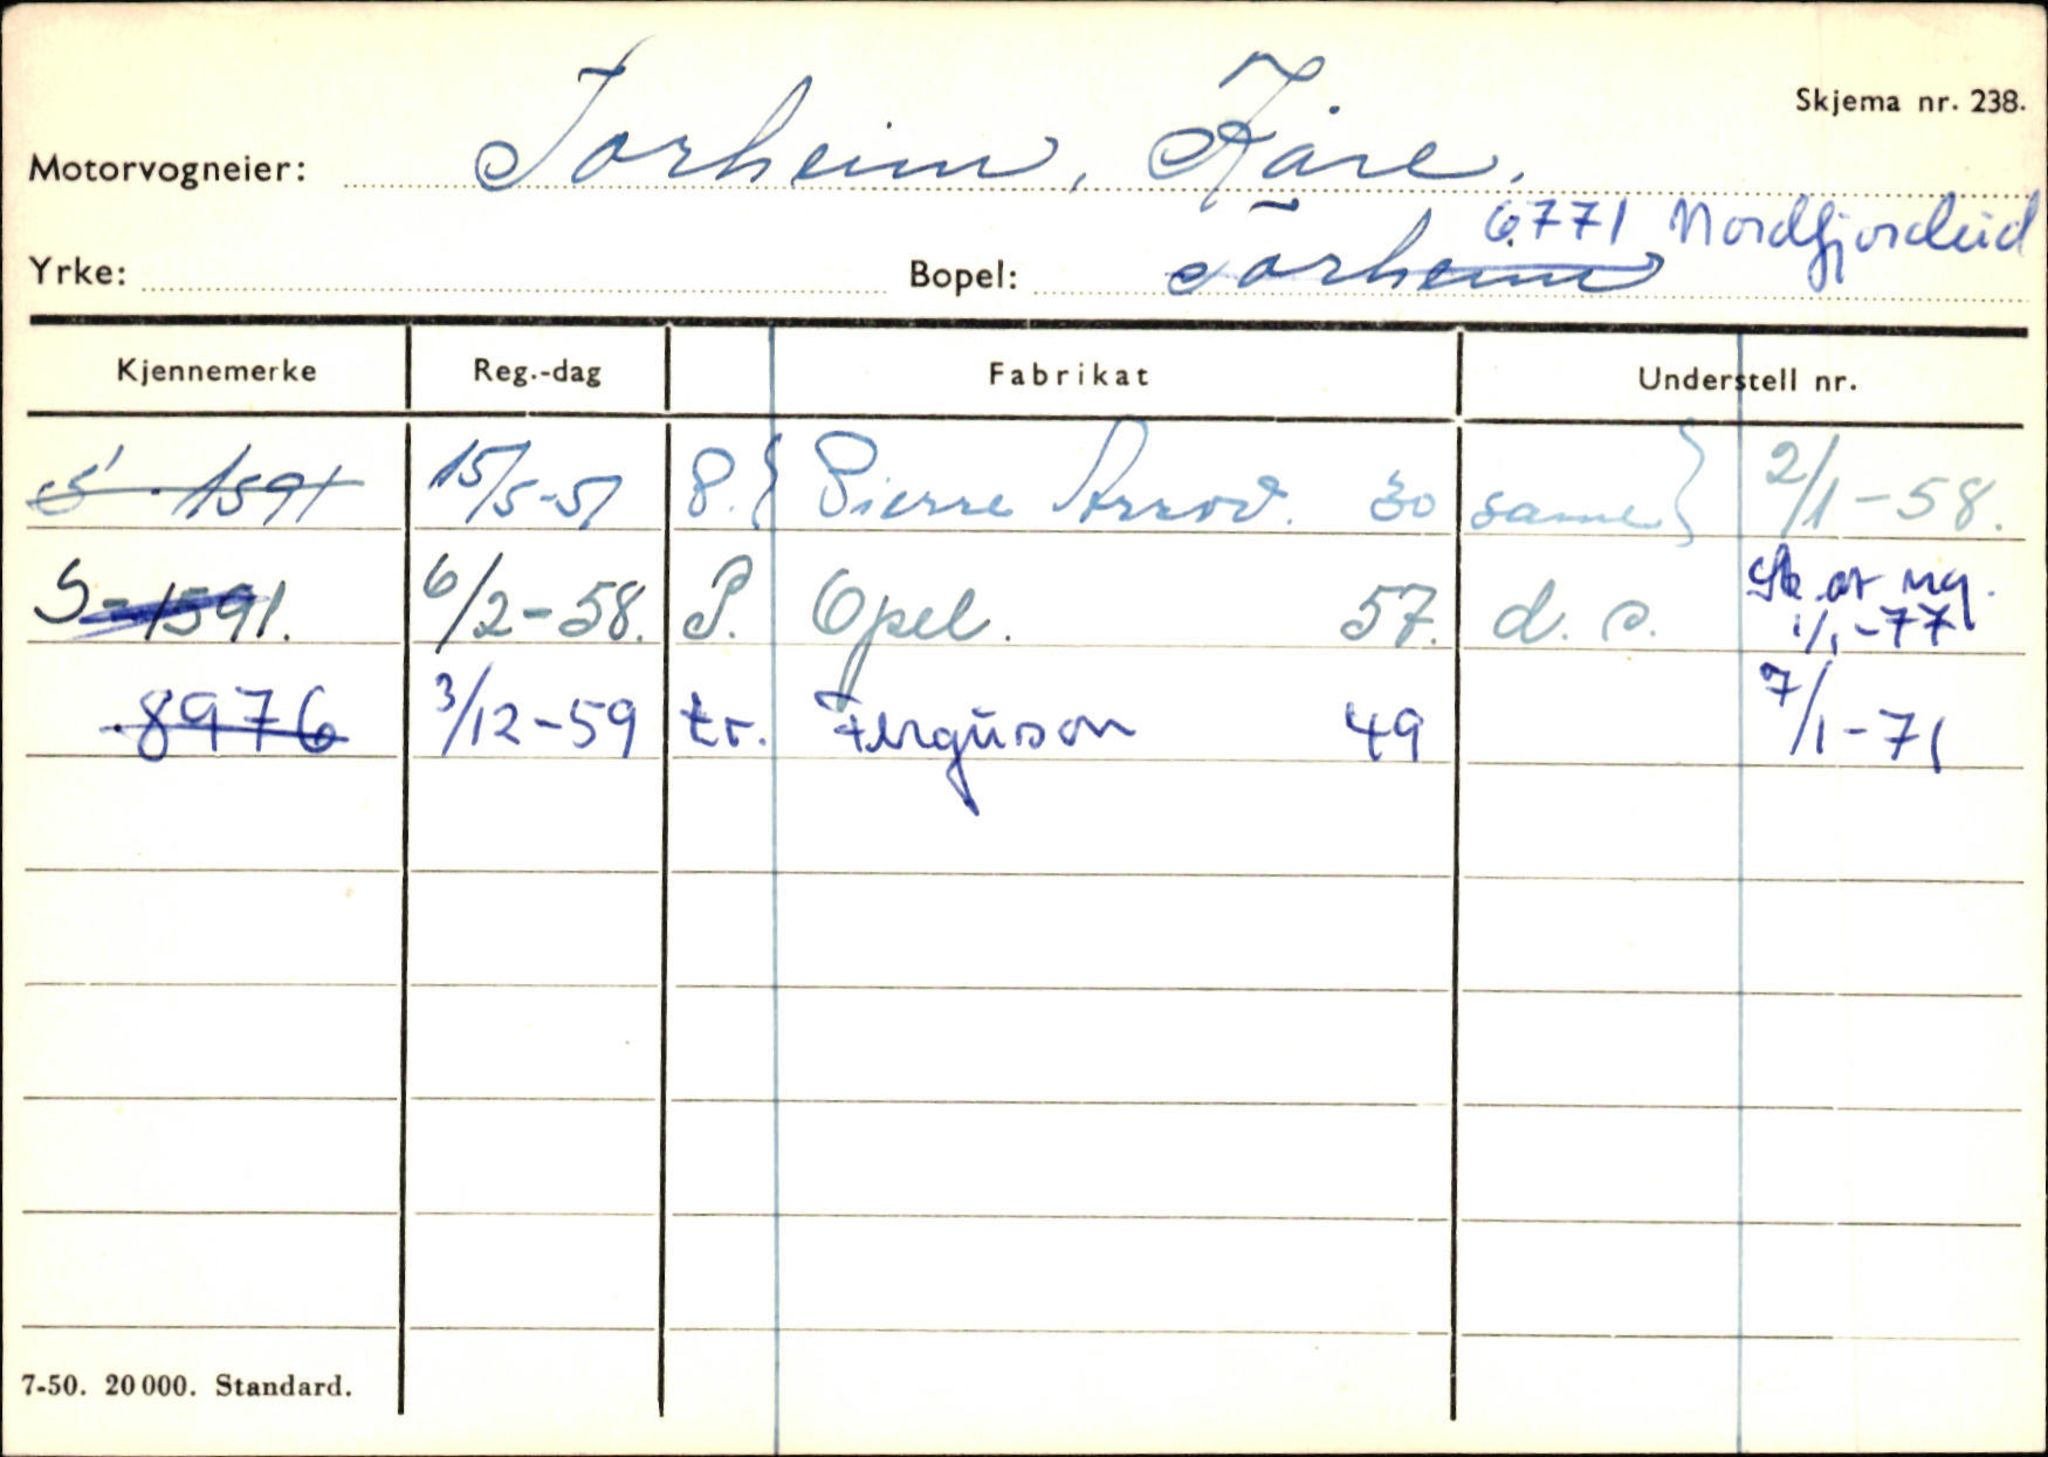 Skjema nr. 238.
Motorvogneier: Torheim, Kåre.
6771 Nordfjordeid
Yrke: Bopel: Torheim
Kjennemerke Reg.-dag Fabrikat Understell nr.
S - 1591 15/5-51 P. { Pierre Arrow. 30 same } 2/1-58.
S-1591. 6/2-58. P. Opel. 57. d. o. Sk. ar ng. 1/1-77
8976 3/12-59 tr. Ferguson 49 7/1-71
7-50. 20 000. Standard.